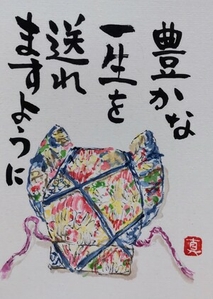 豊かな
一生を
送れ
ますように